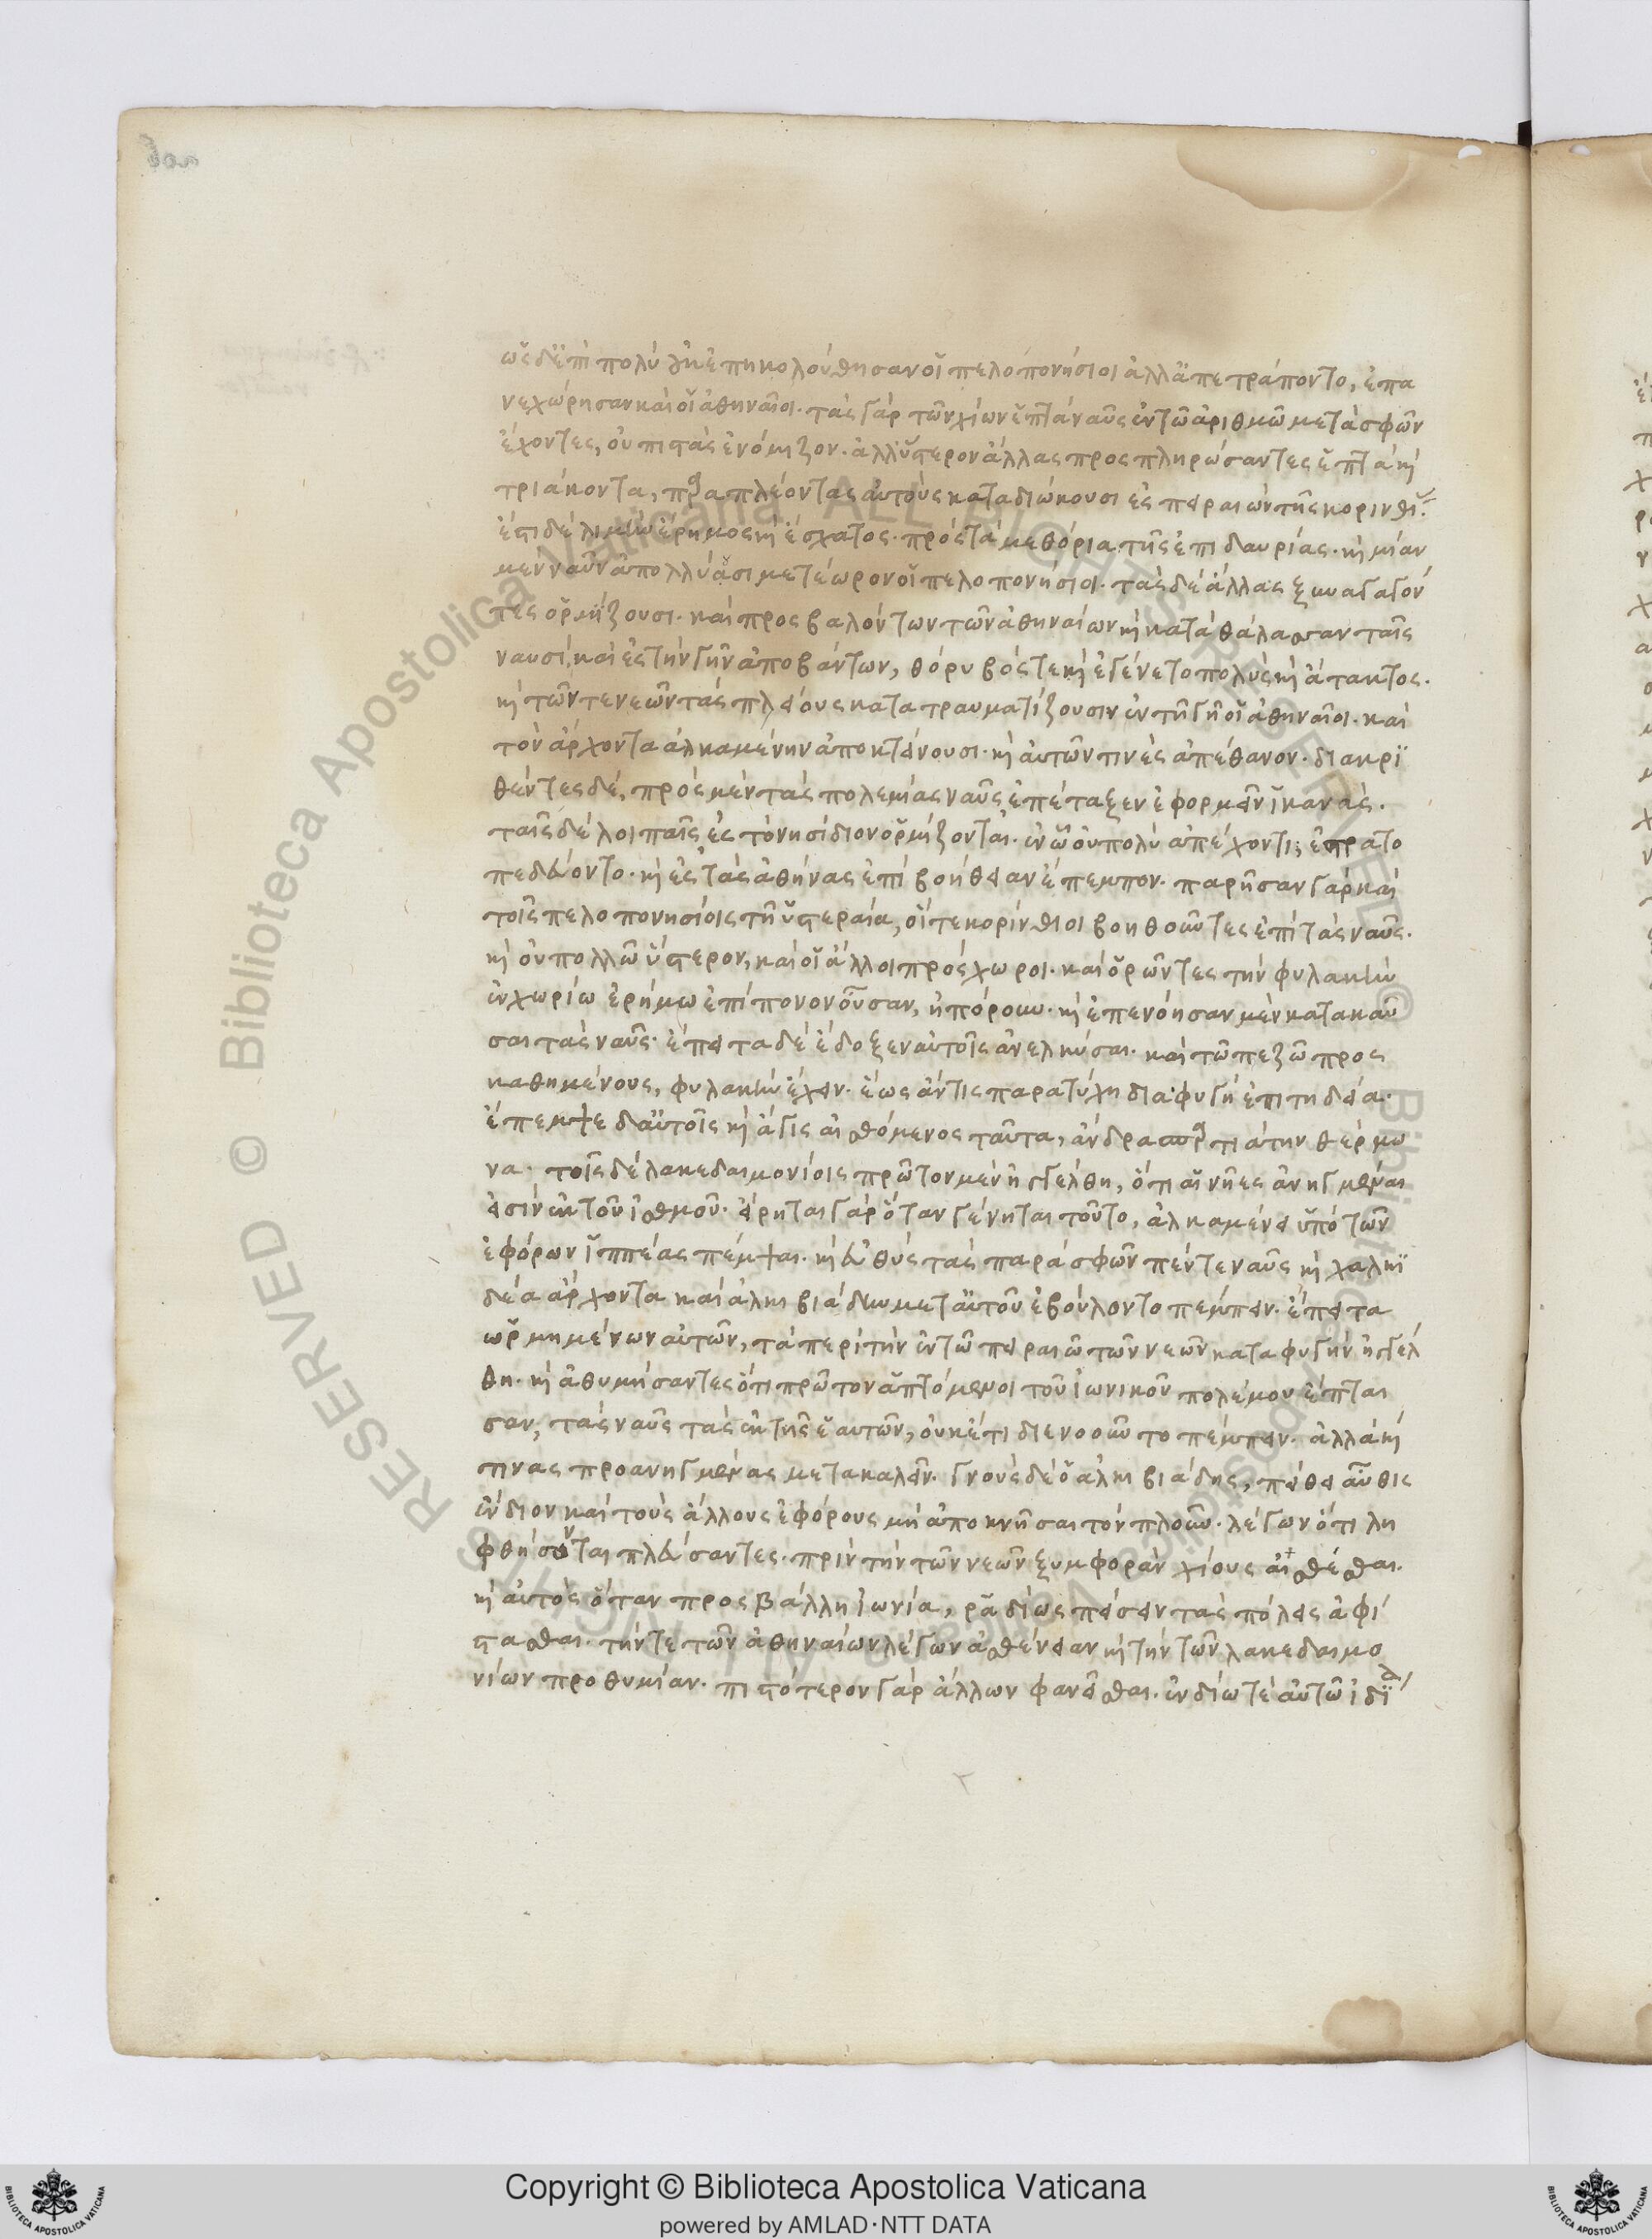 ὡς δ' ἐπὶ πολὺ οὐκ ἐπηκολούθησαν οἱ πελοπονήσιοι ἀλλ' ἀπετράποντο, ἐπα
νεχώρησαν καὶ οἱ ἀθηναῖοι. τὰς γὰρ τῶν χίων ἑπτὰ ναῦς ἐν τῶ ἀριθμῶ μετὰ σφῶν
ἔχοντες, οὐ πιστὰς ἐνόμιζον. ἀλλ' ὕστερον ἄλλας προσπληρώσαντες ἑπτὰ κ(αὶ)
τριάκοντα, παραπλέοντας αὐτοὺς καταδιώκουσι ἐς πειραιὸν τῆς κορινθί.
ἔστι δὲ λιμὴν ἐρῆμος κ(αὶ) ἔσχατος. πρὸς τὰ μεθόρια τῆς ἐπιδαυρίας. κ(αὶ) μίαν
μὲν ναῦν ἀπολλύασι μετέωρον οἱ πελοπονήσιοι. τὰς δὲ ἄλλας ξυναγαγόν
τες ὁρμίζουσι. καὶ προσβαλόντων τῶν ἀθηναίων κ(αὶ) κατὰ θάλασσαν ταῖς
ναυσί, καὶ ἐς τὴν γῆν ἀποβάντων, θόρυβός τε κ(αὶ) ἐγένετο πολὺς κ(αὶ) ἄτακτος.
κ(αὶ) τῶν τε νεῶν τὰς πλείους κατατραυματίζουσιν ἐν τῆ γῆ οἱ ἀθηναῖοι. καὶ
τὸν ἄρχοντα ἀλκαμένην ἀποκτείνουσι. κ(αὶ) αὐτῶν τινὲς ἀπέθανον. διακρι
θέντες δέ, πρὸς μὲν τὰς πολεμίας ναῦς ἐπέταξεν ἐφορμεῖν ἱκανάς.
ταῖς δὲ λοιπαῖς ἐς τὸ νησίδιον ὁρμίζονται. ἐν ᾧ οὐ πολὺ ἀπέχοντι, ἐστρατο
πεδεύοντο. κ(αὶ) ἐς τὰς ἀθήνας ἐπὶ βοήθειαν ἔπεμπον. παρῆσαν γὰρ καὶ
τοῖς πελοπονησίοις τῆ ὑστεραία, οἵ τε κορίνθιοι βοηθοῦντες ἐπὶ τὰς ναῦς.
κ(αὶ) οὐ πολλῶ ὕστερον, καὶ οἱ ἄλλοι πρόσχωροι. καὶ ὁρῶντες τὴν φυλακὴν
ἐν χωρίω ἐρήμω ἐπίπονον οὖσαν, ἠπόρουν. κ(αὶ) ἐπενόησαν μὲν κατακαῦ
σαι τὰς ναῦς. ἔπειτα δὲ ἔδοξεν αὐτοῖς ἀνελκύσαι. καὶ τῶ πεζῶ προσ
καθημένους, φυλακὴν ἔχειν. ἕως ἄν τις παρατύχη διαφυγὴ ἐπιτηδεία.
ἔπεμψε δ' αὐτοῖς κ(αὶ) ἄγις αἰσθόμενος ταῦτα, ἄνδρα σπαρτιάτην θέρμω
να. τοῖς δὲ λακεδαιμονίοις πρῶτον μὲν ἠγγέλθη, ὅτι αἱ νῆες ἀνηγμέναι
εἰσὶν ἐκ τοῦ ἰσθμοῦ. εἴρηται γὰρ ὅταν γένηται τοῦτο, ἀλκαμένει ὑπὸ τῶν
ἐφόρων ἱππέας πέμψαι. κ(αὶ) εὐθὺς τὰς παρὰ σφῶν πέντε ναῦς κ(αὶ) χαλκι
δέα ἄρχοντα καὶ ἀλκιβιάδην μετ' αὐτοῦ ἐβούλοντο πέμπειν. ἔπειτα
ὡρμημένων αὐτῶν, τὰ περὶ τὴν ἐν τῶ πειραιῶ τῶν νεῶν καταφυγὴν ἠγγέλ
θη. κ(αὶ) ἀθυμήσαντες ὅτι πρῶτον ἁπτόμενοι τοῦ ἰωνικοῦ πολέμου ἔπται
σαν, τὰς ναῦς τὰς ἐκ τῆς ἑαυτῶν, οὐκέτι διενοοῦντο πέμπειν. ἀλλὰ κ(αὶ)
τινας προανηγμένας μετακαλεῖν. γνοὺς δὲ ὁ ἀλκιβιάδης, πείθει αὖθις
ἔνδιον καὶ τοὺς ἄλλους ἐφόρους μὴ ἀποκνῆσαι τὸν πλοῦν. λέγων ὅτι λη
φθήσονται πλεύσαντες. πρὶν τὴν τῶν νεῶν ξυμφορὰν χίους αἰσθέσθαι.
κ(αὶ) αὐτὸς ὅταν προσβάλλη ἰωνία, ῥαδίως πείσειν τὰς πόλεις ἀφί
στασθαι. τήν τε τῶν ἀθηναίων λέγων ἀσθένειαν κ(αὶ) τὴν τῶν λακεδαιμο
νίων προθυμίαν. πιστότερον γὰρ ἄλλων φανεῖσθαι. ἐνδίω τὲ αὐτῶ ἰδί
Copyright © Biblioteca Apostolica Vaticana
powered by AMLAD·NTT DATA